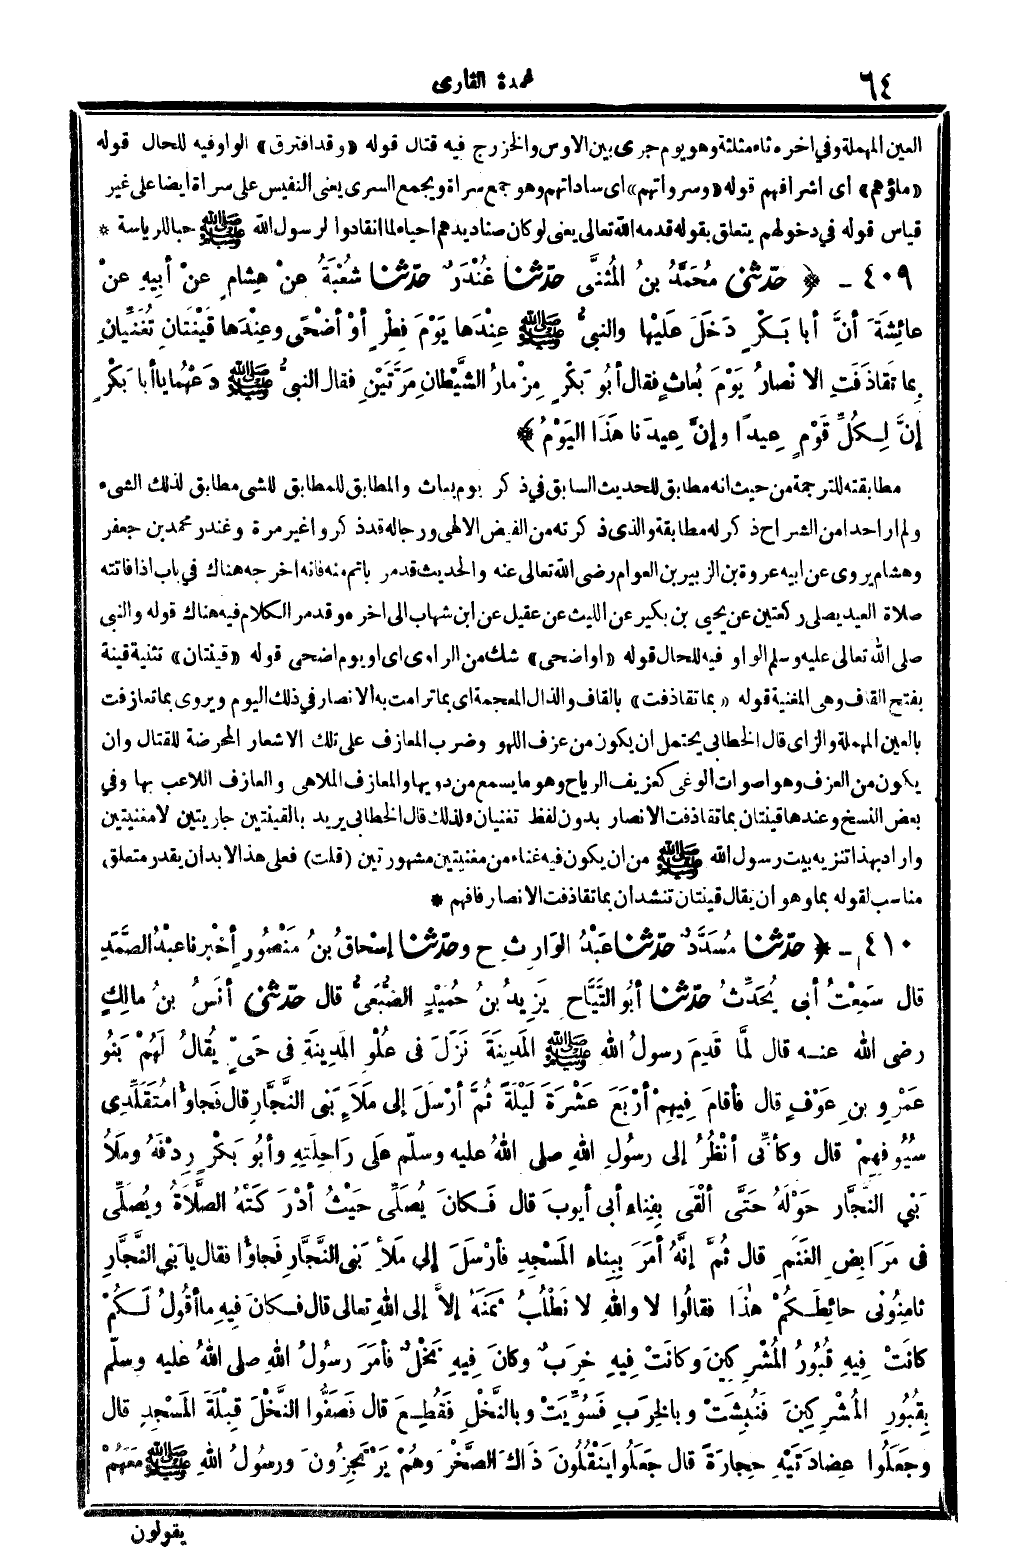 ٦٤
عمدة القارى
العين المهملة وفى اخره ثاء مثلثة وهو يوم جرى بين الاوس والخزرج فيه قتال قوله «وقد افترق» الواو فيه للحال قوله
«ملؤهم» اى اشرافهم قوله «وسرواتهم» اى ساداتهم وهو جمع سراة ويجمع السرى يعنى النفيس على سراة ايضا على غير
قياس قوله فى دخولهم يتعلق بقوله قدمه الله تعالى يعنى لو كان صناديدهم احياء لما انقادوا لرسول الله ﷺ حبا للرياسة *
٤٠٩ - ﴿ حدّثنى مُحَمَّدُ بنُ المُثنَّى حدّثنا غُنْدَرٌ حدّثنا شُعْبَةُ عنْ هِشامٍ عنْ أبِيهِ عنْ
عائِشةَ أنَّ أبا بَكْرٍ دَخَلَ عَلَيْها والنبيُّ ﷺ عِنْدَها يَوْمَ فِطْرٍ أوْ أضْحًى وعِنْدَها قَيْنَتانِ تُغَنِّيانِ
بِما تقَاذَفَتِ الانْصارُ يَوْمَ بُعاثٍ فقال أبُو بَكْرٍ مِزْمارُ الشَّيْطانِ مَرَّتَيْنِ فقال النبيُّ ﷺ دَعْهُما يا أبا بَكْرٍ
إنَّ لِكُلِّ قَوْمٍ عِيدًا وإنَّ عِيدَنا هَذَا اليَوْمُ ﴾
مطابقته للترجمة من حيث انه مطابق للحديث السابق فى ذكر يوم بعاث والمطابق للمطابق للشى مطابق لذلك الشىء
ولم ار احدا من الشراح ذكر له مطابقة والذى ذكرته من الفيض الالهى ورجاله قد ذكروا غير مرة وغندر محمد بن جعفر
وهشام يروى عن ابيه عروة بن الزبير بن العوام رضى الله تعالى عنه والحديث قد مر باتم منه فانه اخرجه هناك فى باب اذا فاتته
صلاة العيد يصلى ركعتين عن يحيى بن بكير عن الليث عن عقيل عن ابن شهاب الى اخره وقد مر الكلام فيه هناك قوله والنبى
صلى الله تعالى عليه وسلم الواو فيه للحال قوله «او اضحى» شك من الراوى اى او يوم اضحى قوله «قينتان» تثنية قينة
بفتح القاف وهى المغنية قوله «بما تقاذفت» بالقاف والذال المعجمة اى بما ترامت به الانصار فى ذلك اليوم ويروى بما تعازفت
بالعين المهملة والزاى قال الخطابى يحتمل ان يكون من عزف اللهو وضرب المعازف على تلك الاشعار المحرضة للقتال وان
يكون من العزف وهو اصوات الوغى كعزيف الرياح وهو ما يسمع من دويها والمعازف الملاهى والعازف اللاعب بها وفى
بعض النسخ وعندها قينتان بما تقاذفت الانصار بدون لفظ تغنيان ولذلك قال الخطابى يريد بالقينتين جاريتين لا مغنيتين
واراد بهذا تنزيه بيت رسول الله ﷺ من ان يكون فيه غناء من مغنيتين مشهورتين (قلت) فعلى هذا لابد ان يقدر متعلق
مناسب لقوله بما وهو ان يقال قينتان تنشدان بما تقاذفت الانصار فافهم *
٤١٠ - ﴿ حدّثنا مُسَدَّدٌ حدّثنا عَبْدُ الوَارِثِ ح وحدّثنا إسْحاقُ بنُ مَنْصُورٍ أخْبرنا عبْدُ الصَّمَدِ
قال سَمِعْتُ أبى يُحَدِّثُ حدّثنا أبُو التَّيَّاحِ يَزِيدُ بنُ حُمَيْدٍ الضُّبَعِىُّ قال حدّثنى أنَسُ بنُ مالِكٍ
رضى الله عنه قال لَمَّا قَدِمَ رسولُ الله ﷺ المَدِينَةَ نَزَلَ فى عُلْوِ المَدِينَةِ فى حَىٍّ يُقالُ لَهُمْ بَنُو
عَمْرِو بنِ عَوْفٍ قال فأقامَ فِيهِمْ أرْبَعَ عَشْرَةَ لَيْلَةً ثُمَّ أرْسَلَ إلى مَلَاءِ بَنى النَّجَّارِ قال فَجاؤُا مُتَقَلِّدِى
سُيُوفِهِمْ قال وكأنِّى أنْظُرُ إلى رسُولِ اللهِ صلى اللهُ عليه وسلّم علَى رَاحِلَتِهِ وأبُو بَكْرٍ رِدْفَهُ ومَلَأُ
بَنِي النَّجَّارِ حَوْلَهُ حَتَّى ألْقَى بِفِناءِ أبى أيوبَ قال فَكانَ يُصَلِّى حَيْثُ أدْرَكَتْهُ الصَّلَاةُ ويُصَلِّى
فى مَرَابِضِ الغَنَمِ قال ثُمَّ إنَّهُ أمَرَ بِبِناءِ المَسْجِدِ فأرْسَلَ إلى مَلأِ بَنى النَّجَّارِ فَجاؤُا فقال يا بَنِى النَّجَّارِ
ثامِنُونى حائِطَكُمْ هٰذَا فقالُوا لا واللهِ لا نَطْلُبُ ثَمَنَهُ إلاَّ إلى اللهِ تعالى قال فكانَ فِيهِ ما أقُولُ لَكُمْ
كانَتْ فِيهِ قُبُورُ المُشْرِكِينَ وكانَتْ فِيهِ خِرَبٌ وكانَ فِيهِ نَخْلٌ فأمَرَ رسُولُ اللهِ صلى اللهُ عليه وسلّم
بِقُبُورِ المُشْرِكِينَ فَنُبِشَتْ وبالخِرَبِ فَسُوِّيَتْ وبالنَّخْلِ فَقُطِعَ قال فَصَفُّوا النَّخْلَ قِبْلَةَ المَسْجِدِ قال
وجَعَلُوا عِضادَتَيْهِ حِجارَةً قال جَعَلُوا يَنْقُلُونَ ذَاكَ الصَّخْرَ وهُمْ يَرْتَجِزُونَ ورسُولُ اللهِ ﷺ مَعَهُمْ
يقولون